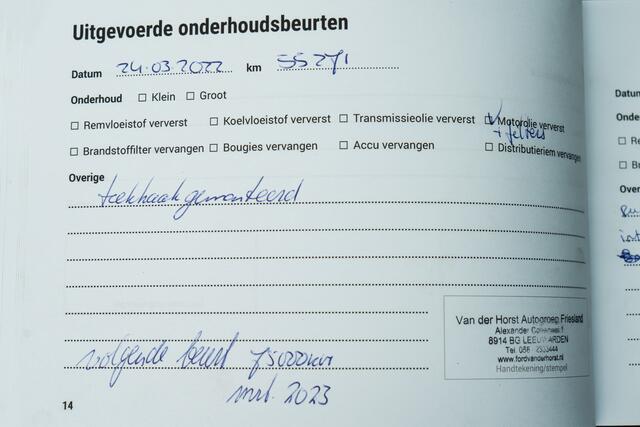 Uitgevoerde onderhoudsbeurten
Datum 24.03.2022 km 55271
Onderhoud Klein Groot
Remvloeistof ververst Koelvloeistof ververst Transmissieolie ververst Motorolie ververst
+ filters
Brandstoffilter vervangen Bougies vervangen Accu vervangen Distributieriem vervangen
Overige
trekhaak gemonteerd
Van der Horst Autogroep Friesland
Alexander
8914 BG LEEUWARDEN
Tel. 058
www.fordvanderhorst.nl
Handtekening/stempel
volgende beurt 75000km
mrt. 2023
14
Datum
Onde
Re
Br
Over